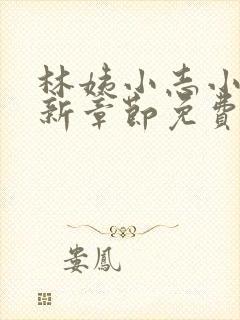 林姨小志小
新章節免費
娄鳳